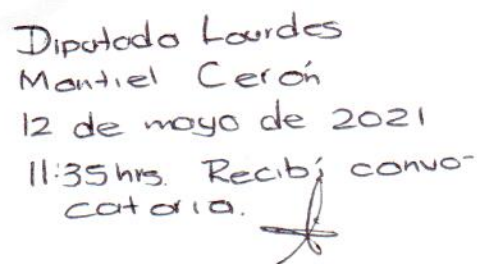 Diputada Lourdes
Montiel Cerón
12 de mayo de 2021
11:35 hrs. Recibí convo-
catoria.